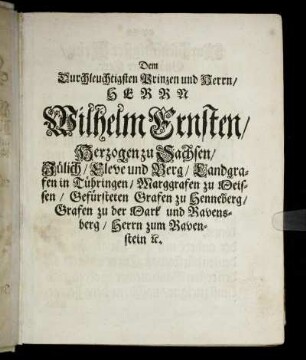 Dem
Durchleuchtigsten Prinzen und Herrn/
HERRN
Wilhelm Ernsten/
Herzogen zu Sachsen/
Jülich/ Cleve und Berg/ Landgra-
fen in Tühringen/ Marggrafen zu Meis-
sen/ Gefürsteten Grafen zu Henneberg/
Grafen zu der Mark und Ravens-
berg/ Herrn zum Raven-
stein ꝛc.